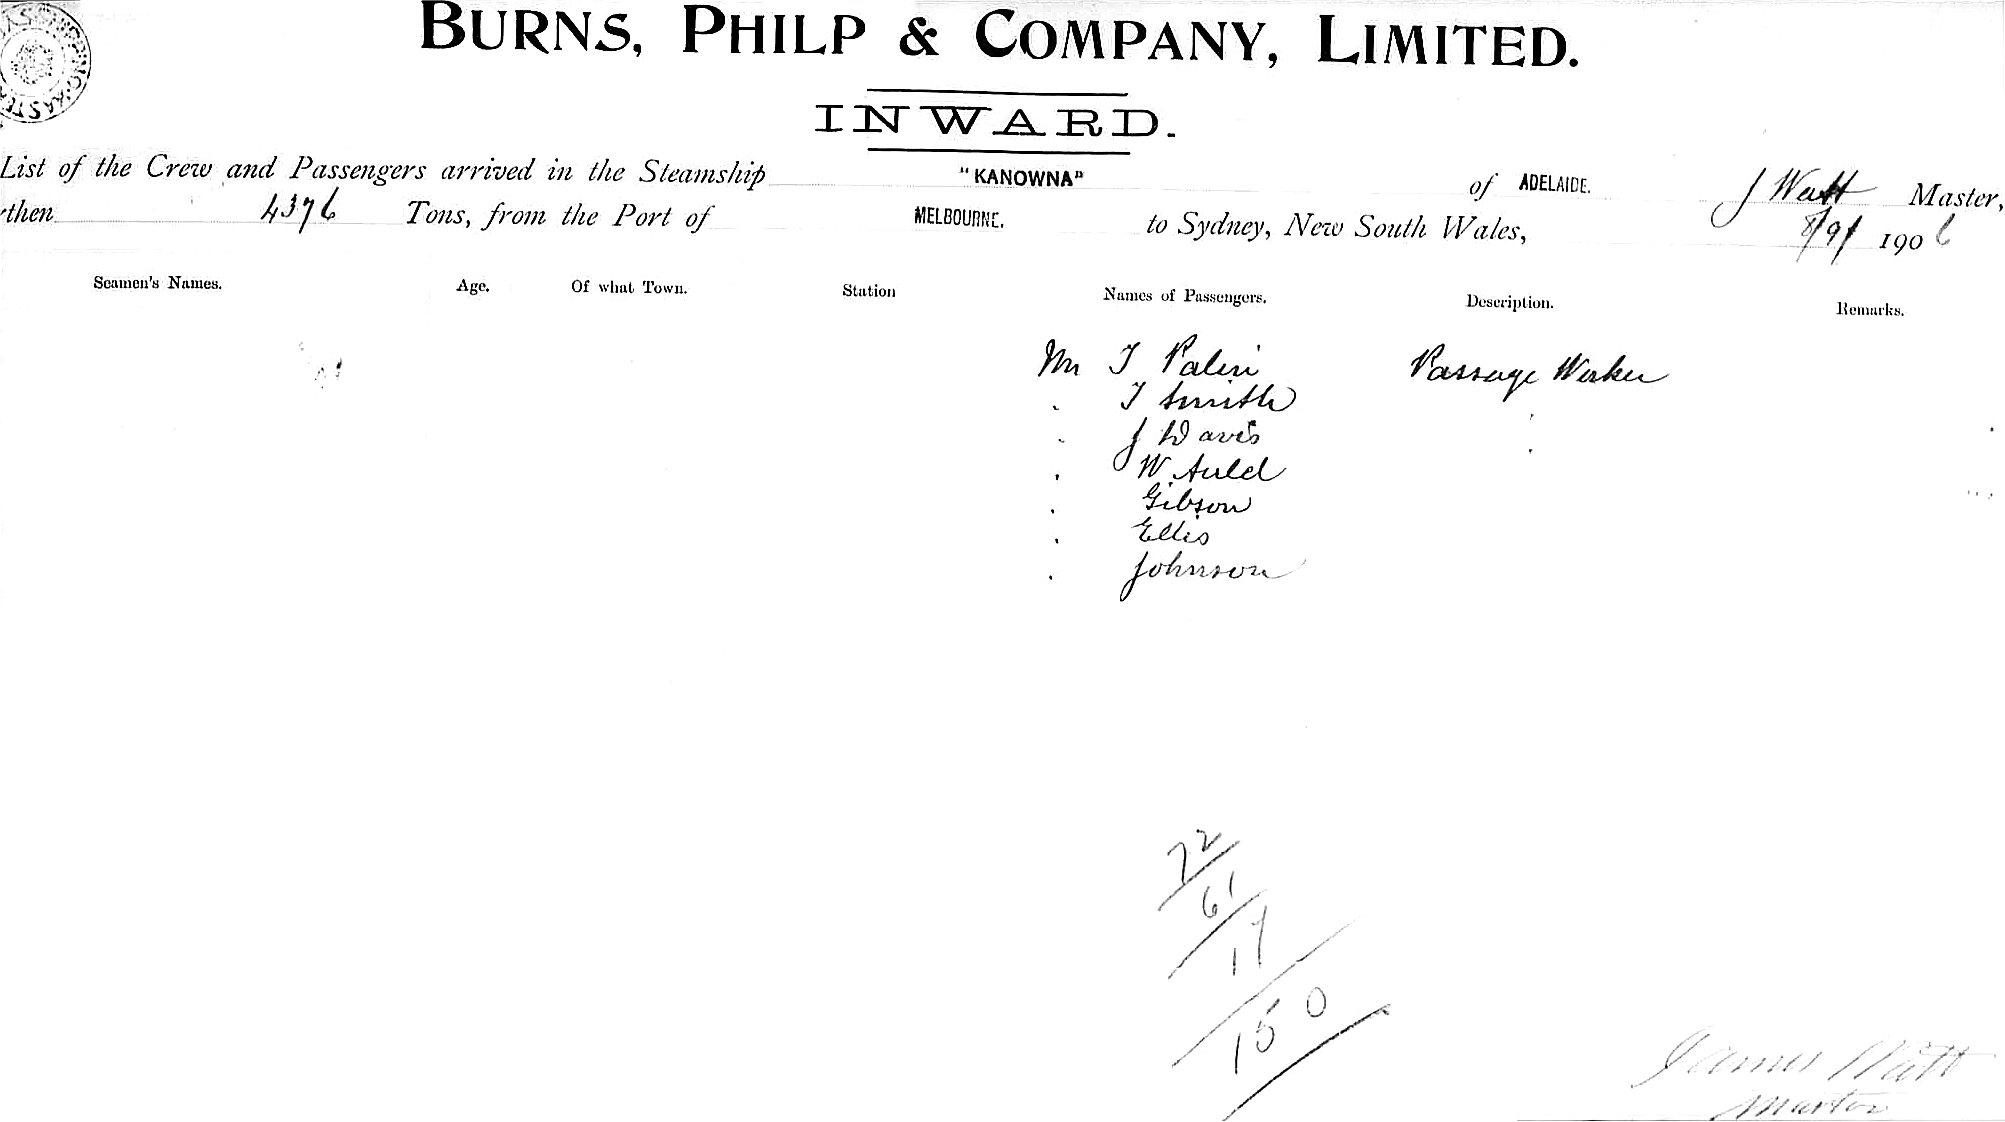 BURNS, PHILP & COMPANY, LIMITED.
INWARD.
List of the Crew and Passengers arrived in the Steamship "KANOWNA" of ADELAIDE. J Watt Master,
then 4376 Tons, from the Port of MELBOURNE. to Sydney, New South Wales, 8/9/ 1906
Seamen's Names. Age. Of what Town. Station Names of Passengers. Description. Remarks.
Mr T Palin Passage Worker
. T Smith '
. J Davis .
. W Auld
. Gibson
. Ellis
. Johnson
72
61
17
150
James Watt
Master